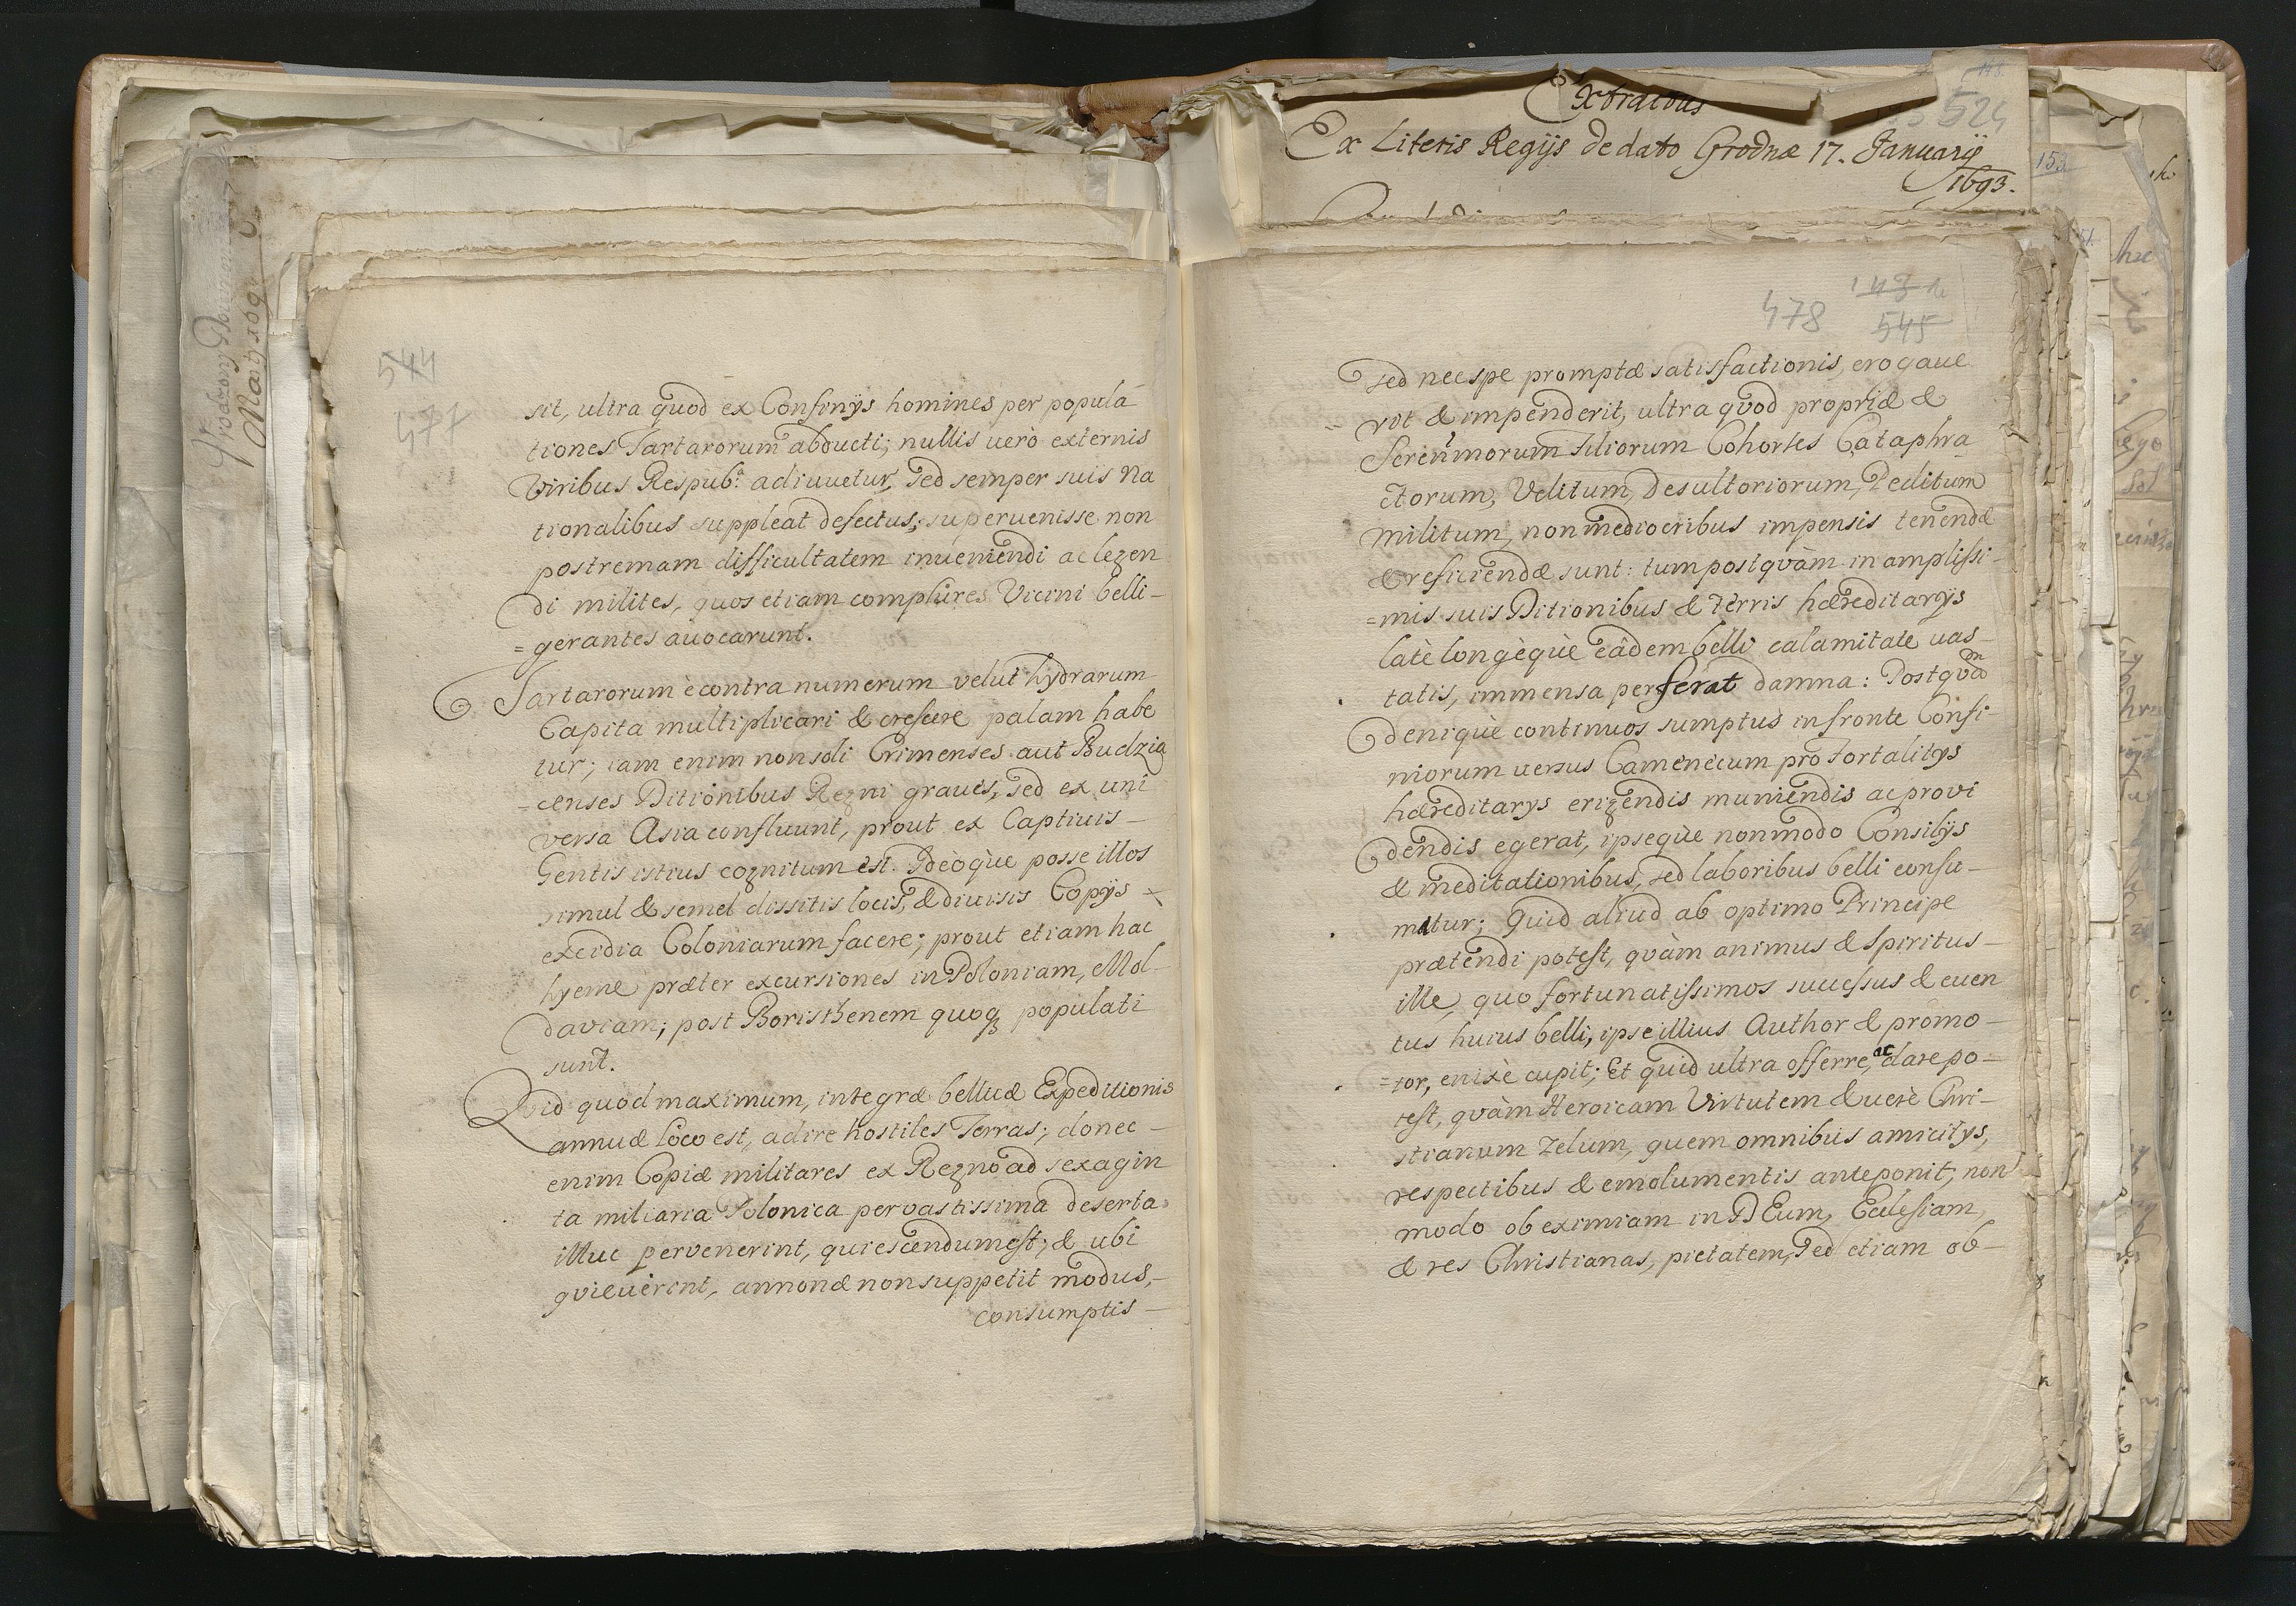 Extractus
Ex Literis Regijs de dato Grodnæ 17. Januarij
1693.
524
153
544
477
sit, ultra quod ex Confinijs homines per popula
tiones Tartarorum abducti; nullis uerò externis
Viribus Respub.ᵃ adiuuetur, sed semper suis Na
tionalibus suppleat defectus; superuenisse non
postremam difficultatem inueniendi ac legen
di milites, quos etiam complures Vicini belli-
=gerantes auocarunt.
Tartarorum è contra numerum velut hydrarum
Capita multiplicari & crescere palam habe
tur; iam enim non soli Crimenses aut Budzia
=censes Ditionibus Regni graues, sed ex uni
versa Asia confluunt, prout ex Captiuis-
Gentis istius cognitum est. Ideòque posse illos
simul & semel dissitis locis, & diuisis Copijs
excidia Coloniarum facere; prout etiam hac
hyeme præter excursiones in Poloniam, Mol-
daviam; post Boristhenem quoq populati
sunt.
Quid quod maximum, integræ bellicæ Expeditionis
annuæ loco est, adire hostiles Terras; donec-
enim Copiæ militares ex Regno ad sexagin
ta miliaria Polonica per vastissima deserta
illuc pervenerint, quiescendum est; & ubi
qvieuerint, annonæ non suppetit modus,-
consumptis-
478
545
sed nec spe promptæ satisfactionis, erogaue
rit & impenderit, ultra qvod propriæ &
Serenmorum Filiorum Cohortes Cataphra
ctorum, Velitum, Desultoriorum, Peditum
militum, non mediocribus impensis tenendæ
& reficiendæ sunt: tum postqvàm in amplissi-
=mis suis Ditionibus & Terris hæreditarijs
latè longèqùe eâdem belli calamitate uas-
tatis, immensa perferat damna: Postqvam
deniqùe continuos sumptus in fronte Confi-
niorum uersus Camenecum pro Fortalitijs
hæreditarijs erigendis muniendis ac provi
dendis egerat, ipseqùe non modo Consilijs
& meditationibus, sed laboribus belli consu-
matur; Quid aliud ab optimo Principe
prætendi potest, qvàm animus & Spiritus-
ille, quo fortunatissimos successus & euen
tus huius belli, ipse illius Author & promo-
=tor, enixè cupit; Et quid ultra offerre, ac dare po-
test, qvàm Heroicam Virtutem & uerè Chri-
stianum Zelum, quem omnibus amicitijs,
respectibus & emolumentis anteponit; non
modo ob eximiam in DEum, Ecclesiam,
& res Christianas, pietatem, sed etiam ob-